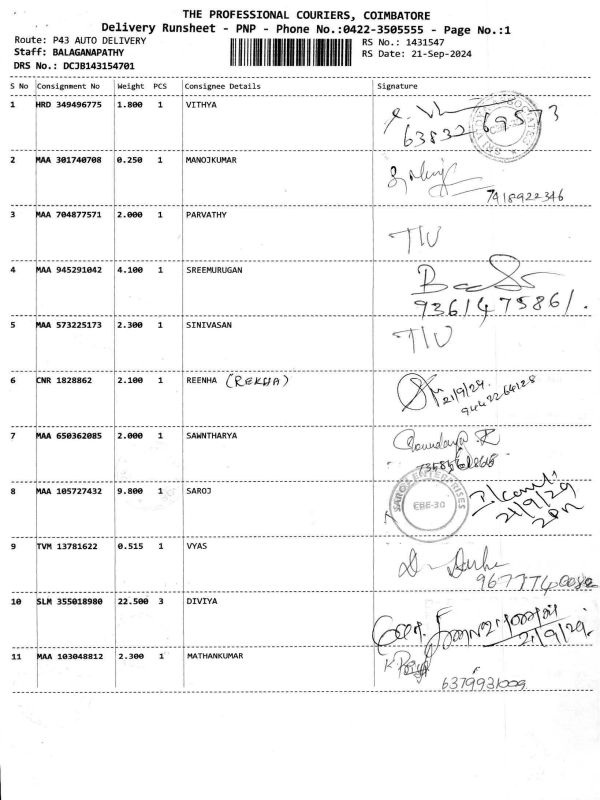 THE PROFESSIONAL COURIERS, COIMBATORE
Delivery Runsheet - PNP - Phone No.:0422-3505555 - Page No.:1
Route: P43 AUTO DELIVERY
RS No.: 1431547
Staff: BALAGANAPATHY
RS Date: 21-Sep-2024
DRS No.: DCJB143154701
S No Consignment No Weight PCS Consignee Details Signature
1 HRD 349496775 1.800 1 VITHYA
63832 69573
2 MAA 301740708 0.250 1 MANOJKUMAR
7418922346
3 MAA 704877571 2.000 1 PARVATHY
T/U
4 MAA 945291042 4.100 1 SREEMURUGAN
9361475861.
5 MAA 573225173 2.300 1 SINIVASAN
T/U
6 CNR 1828862 2.100 1 REENHA (REKHA)
21/9/24.
9442264128
7 MAA 650362085 2.000 1 SAWNTHARYA
Soundarya R
8 MAA 105727432 9.800 1 SAROJ
SAROJ ENTERPRISES
CBE-30
21/9/24
9 TVM 13781622 0.515 1 VYAS
10 SLM 355018980 22.500 3 DIVIYA
21/9/24.
11 MAA 103048812 2.300 1 MATHANKUMAR
6379931009